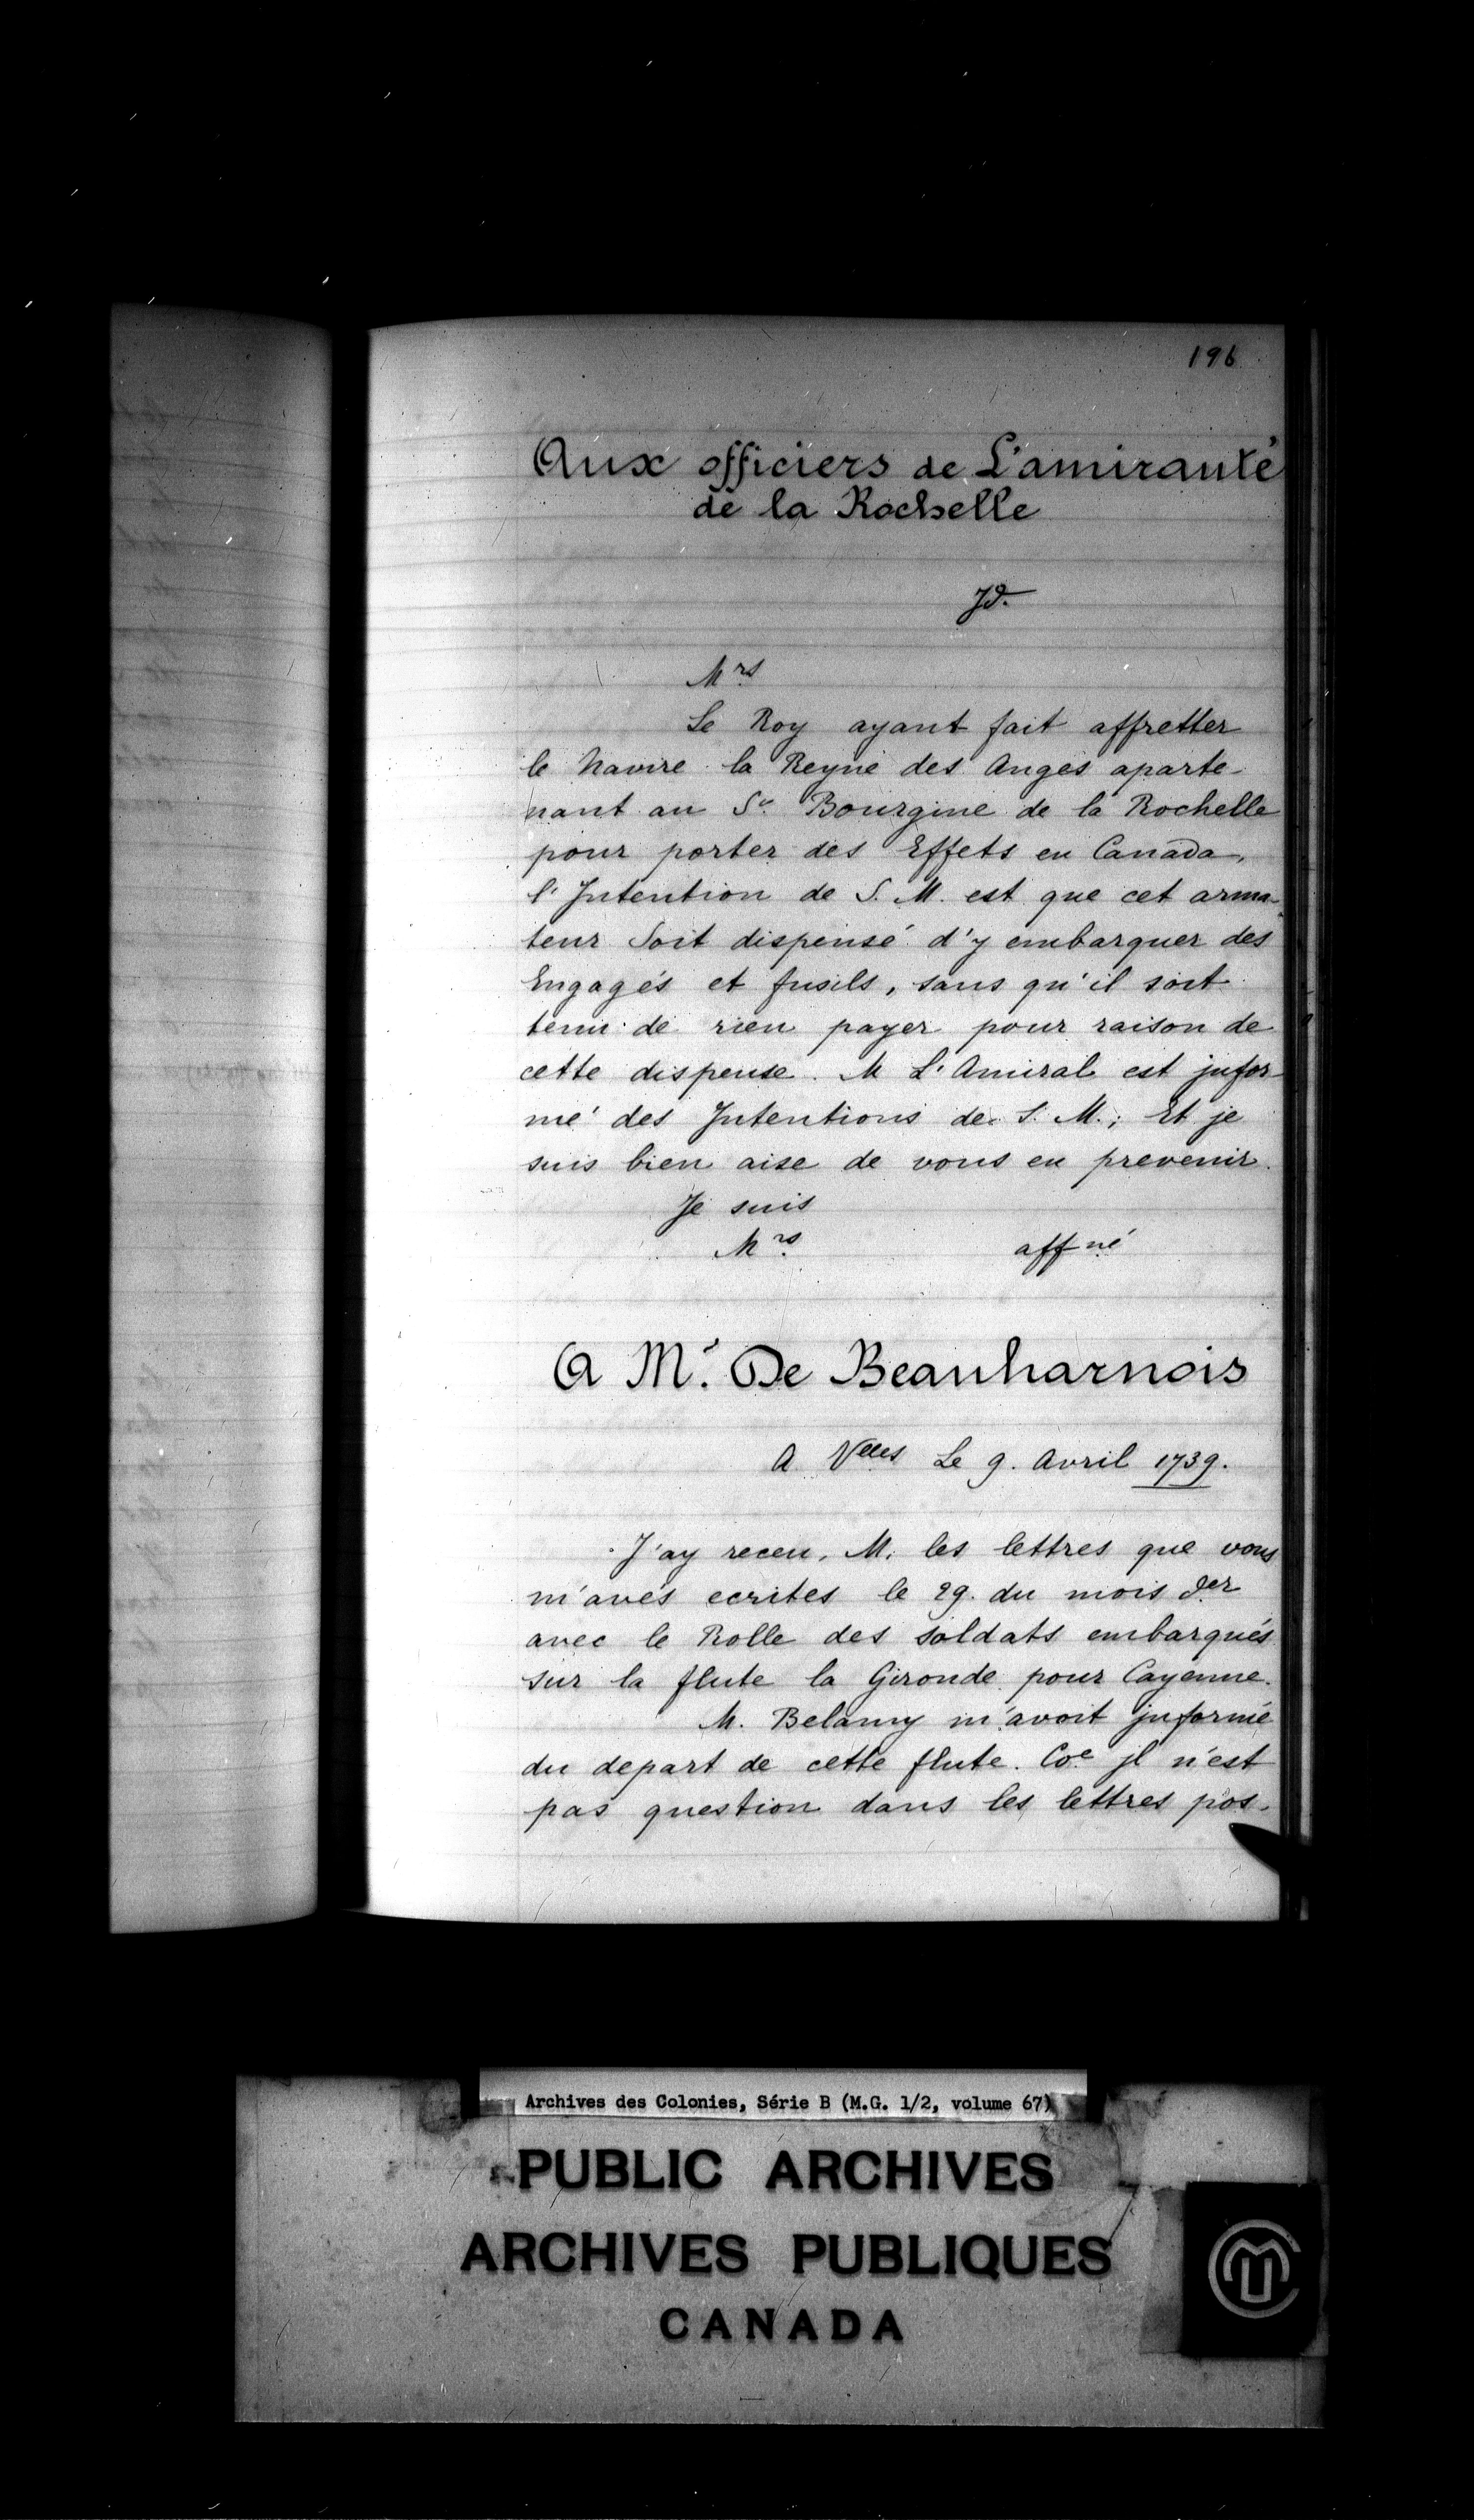 196
Aux officiers de L'amirauté
de la Rochelle
Jd.
Mrs
Le Roy ayant fait affretter
le Navire la Reyne des Anges aparte-
nant au Sr. Bourgine de la Rochelle
pour porter des Effets en Canada,
l'Intention de S. M. est que cet arma-
teur soit dispensé d'y embarquer des
Engagés et fusils, sans qu'il soit
tenu de rien payer pour raison de
cette dispense. M L'Amiral est jnfor-
mé des Intentions de S. M.; Et je
suis bien aise de vous en prevenir.
Je suis
Mrs affné
A Mr. De Beauharnois
A Vlles Le 9. Avril 1739.
J'ay receu, M. les lettres que vous
m'avés ecrites le 29. du mois der
avec le Rolle des soldats embarqués
sur la flute la Gironde pour Cayenne.
M. Belamy m'avoit jnformé
du depart de cette flute. Coe jl n'est
pas question dans les lettres pos-
Archives des Colonies, Série B (M.G. 1/2, volume 67)
PUBLIC ARCHIVES
ARCHIVES PUBLIQUES
CANADA